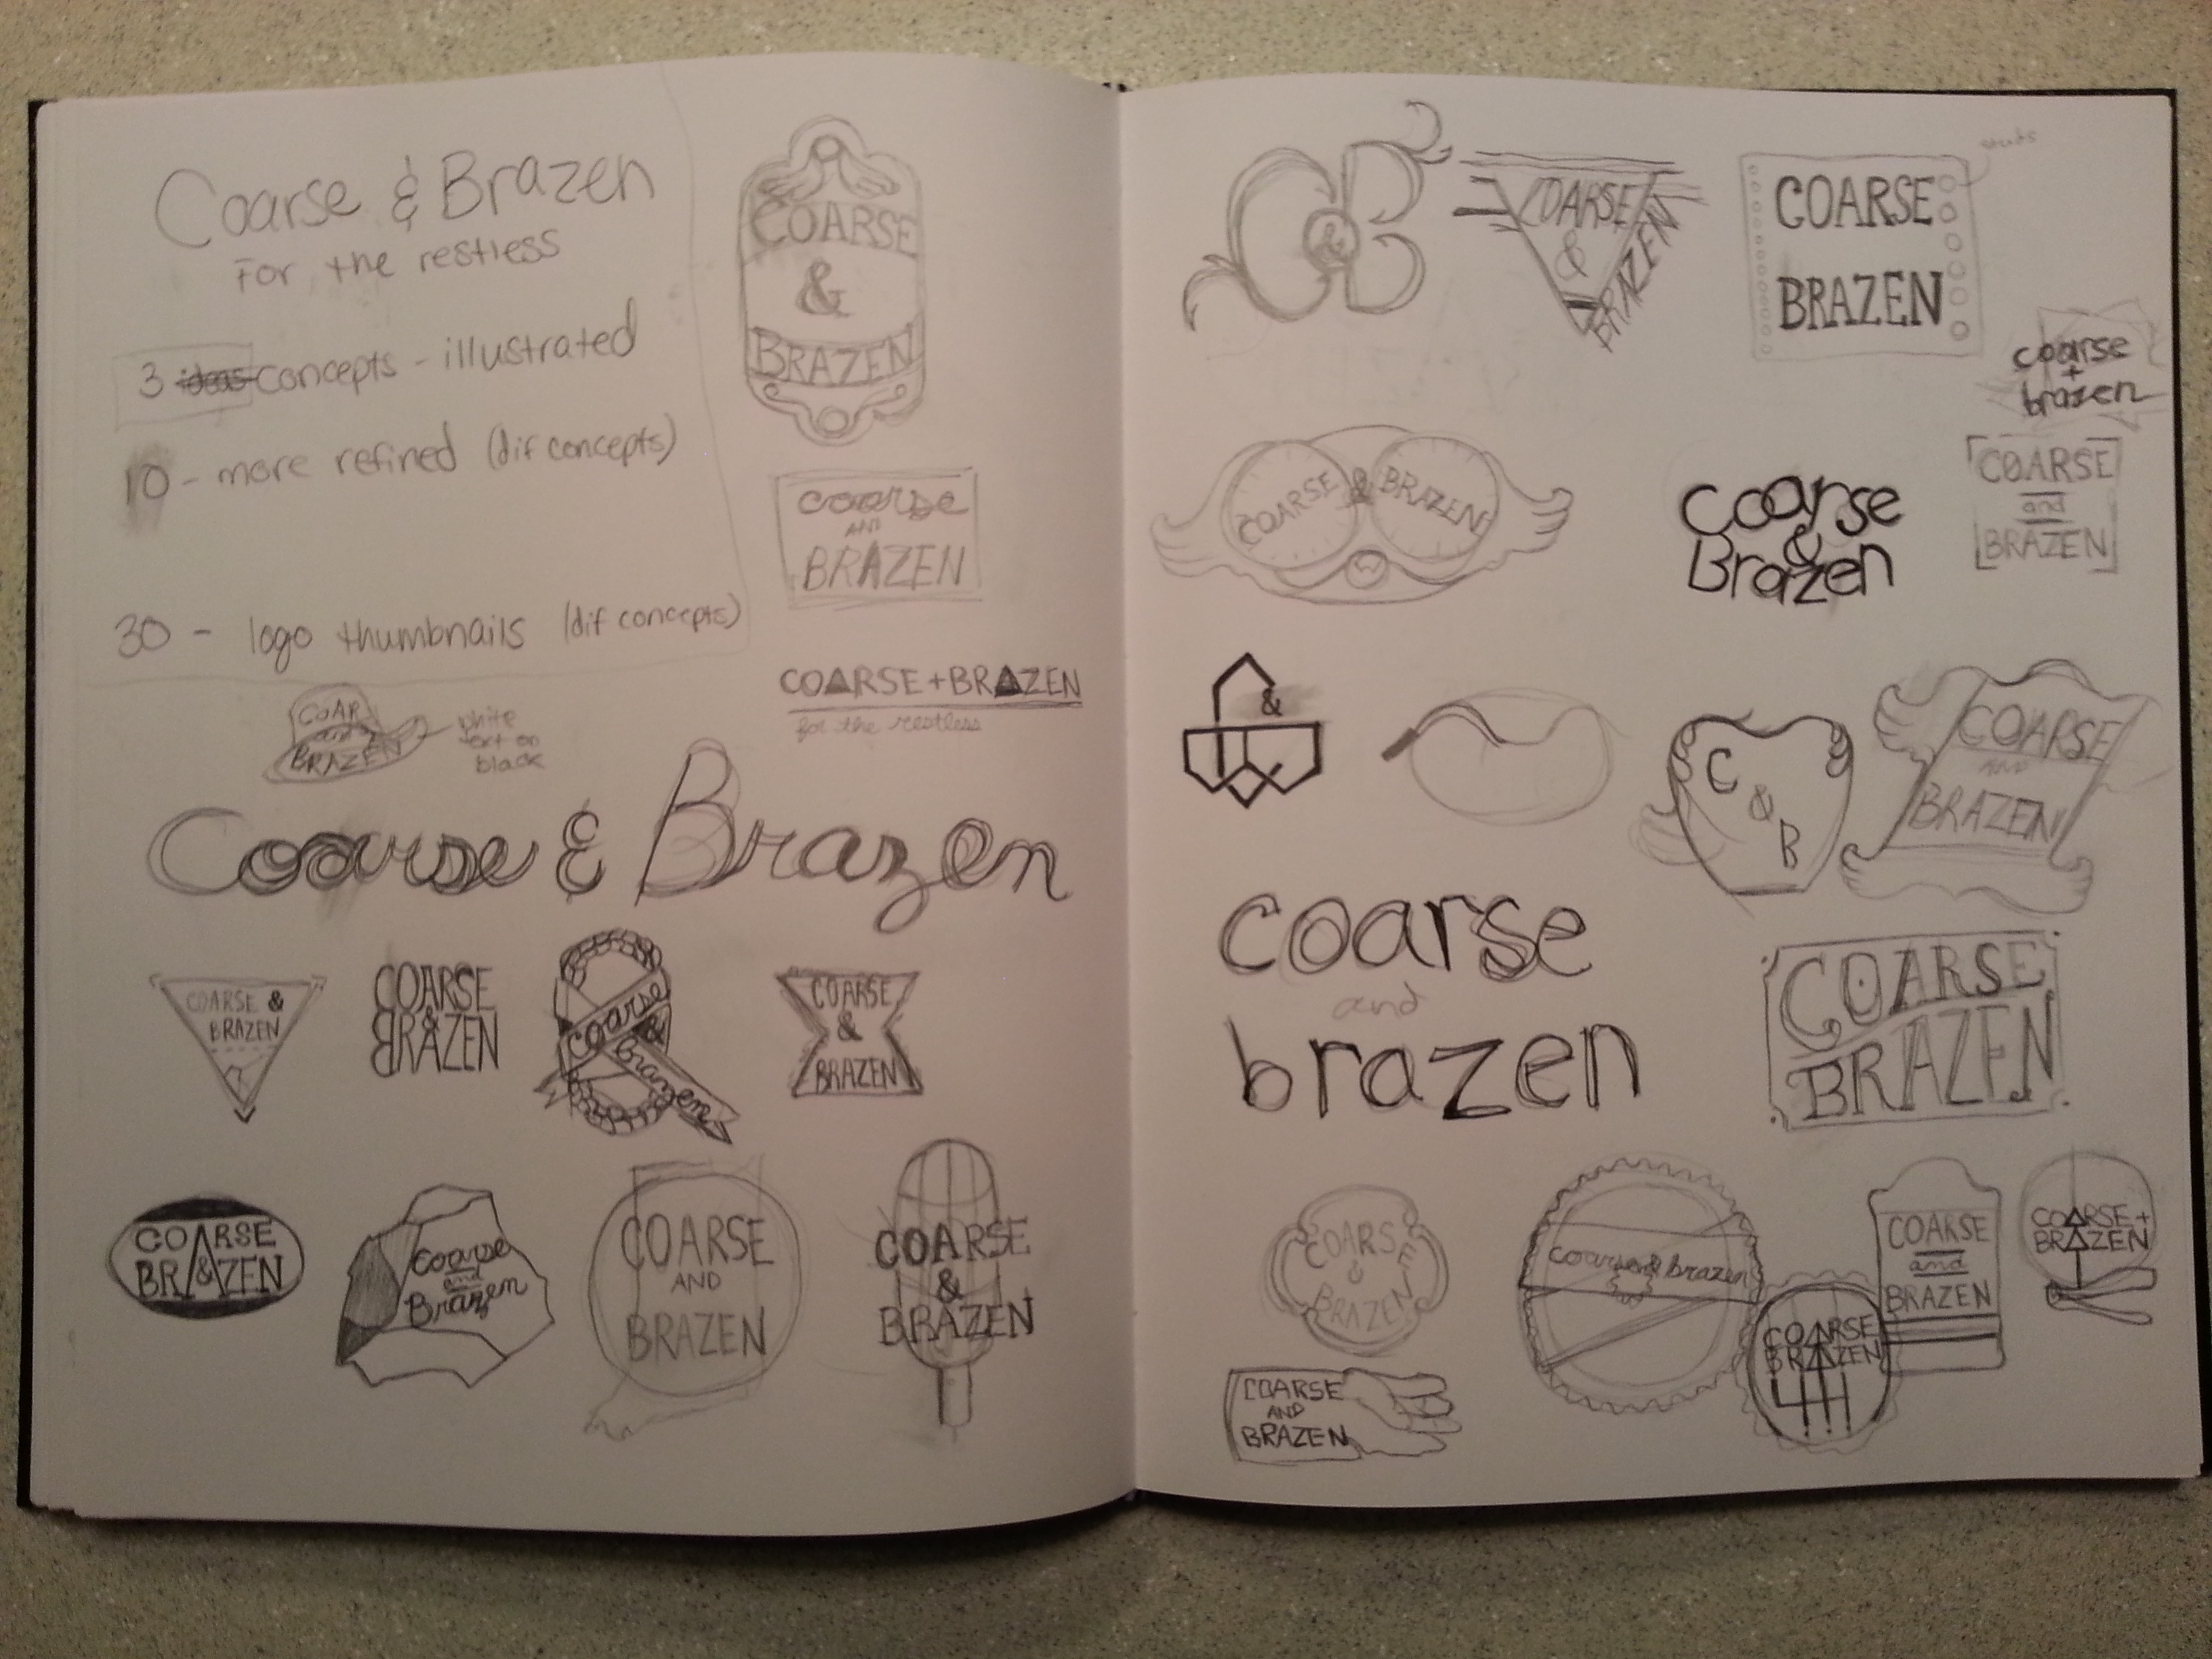 Coarse & Brazen
For the restless
3 concepts - illustrated
10 - more refined (dif concepts)
30 - logo thumbnails (dif concepts)
COARSE
&
BRAZEN
coarse
AND
BRAZEN
COARSE + BRAZEN
for the restless
COAR
and
BRAZEN
white
text on
black
Coarse & Brazen
COARSE &
BRAZEN
COARSE
&
BRAZEN
coarse
&
brazen
COARSE
&
BRAZEN
COARSE
BR&ZEN
coarse
and
Brazen
COARSE
AND
BRAZEN
COARSE
&
BRAZEN
C&B
COARSE
&
BRAZEN
COARSE
BRAZEN
coarse
+
brazen
COARSE & BRAZEN
coarse
&
Brazen
COARSE
and
BRAZEN
&
C
&
B
COARSE
AND
BRAZEN
coarse
and
brazen
COARSE
BRAZEN
COARSE
&
BRAZEN
coarse & brazen
COARSE
BRAZEN
COARSE
and
BRAZEN
COARSE +
BRAZEN
COARSE
AND
BRAZEN